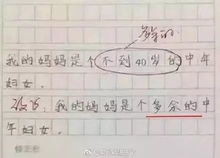 多余的
我的妈妈是个不到40岁的中年
妇女。
改为:我的妈妈是个多余的中
年妇女。
修正栏